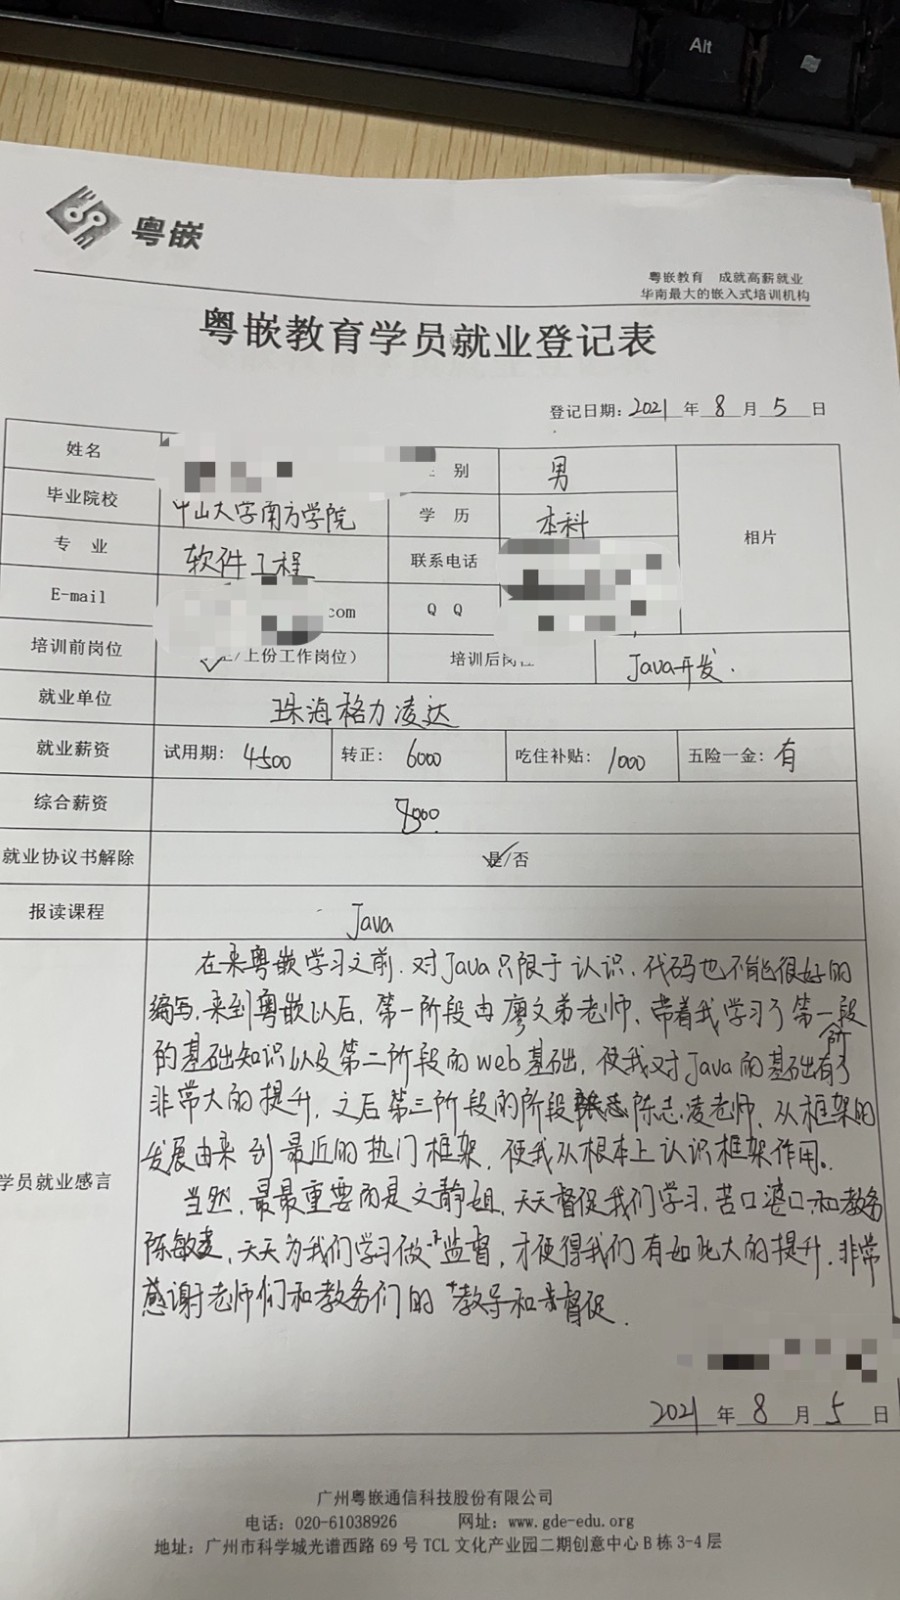 Alt
粤嵌
粤嵌教育 成就高薪就业
华南最大的嵌入式培训机构
粤嵌教育学员就业登记表
登记日期：2021 年 8 月 5 日
姓名 别 男
毕业院校 中山大学南方学院 学 历 本科 相片
专 业 软件工程 联系电话
E-mail com Q Q
培训前岗位 /上份工作岗位） 培训后岗位 Java开发.
就业单位 珠海格力凌达
就业薪资 试用期：4500 转正：6000 吃住补贴：1000 五险一金：有
综合薪资 000.
就业协议书解除 是/否
报读课程 Java
学员就业感言
在来粤嵌学习之前.对Java只限于认识.代码也不能很好的
编写.来到粤嵌以后.第一阶段由廖文弟老师.带着我学习了第一阶段
的基础知识以及第二阶段的web基础，使我对Java的基础有了
非常大的提升.之后第三阶段的阶段 陈志凌老师.从框架的
发展由来到最近的热门框架.使我从根本上认识框架作用。
当然.最最重要而是文静姐.天天督促我们学习.苦口婆口.和教务
陈敏 .天天为我们学习做 监督.才使得我们有如此大的提升.非常
感谢老师们和教务们的教导和督促.
2021 年 8 月 5 日
广州粤嵌通信科技股份有限公司
电话：020-61038926 网址：www.gde-edu.org
地址：广州市科学城光谱西路 69 号 TCL 文化产业园二期创意中心 B 栋 3-4 层